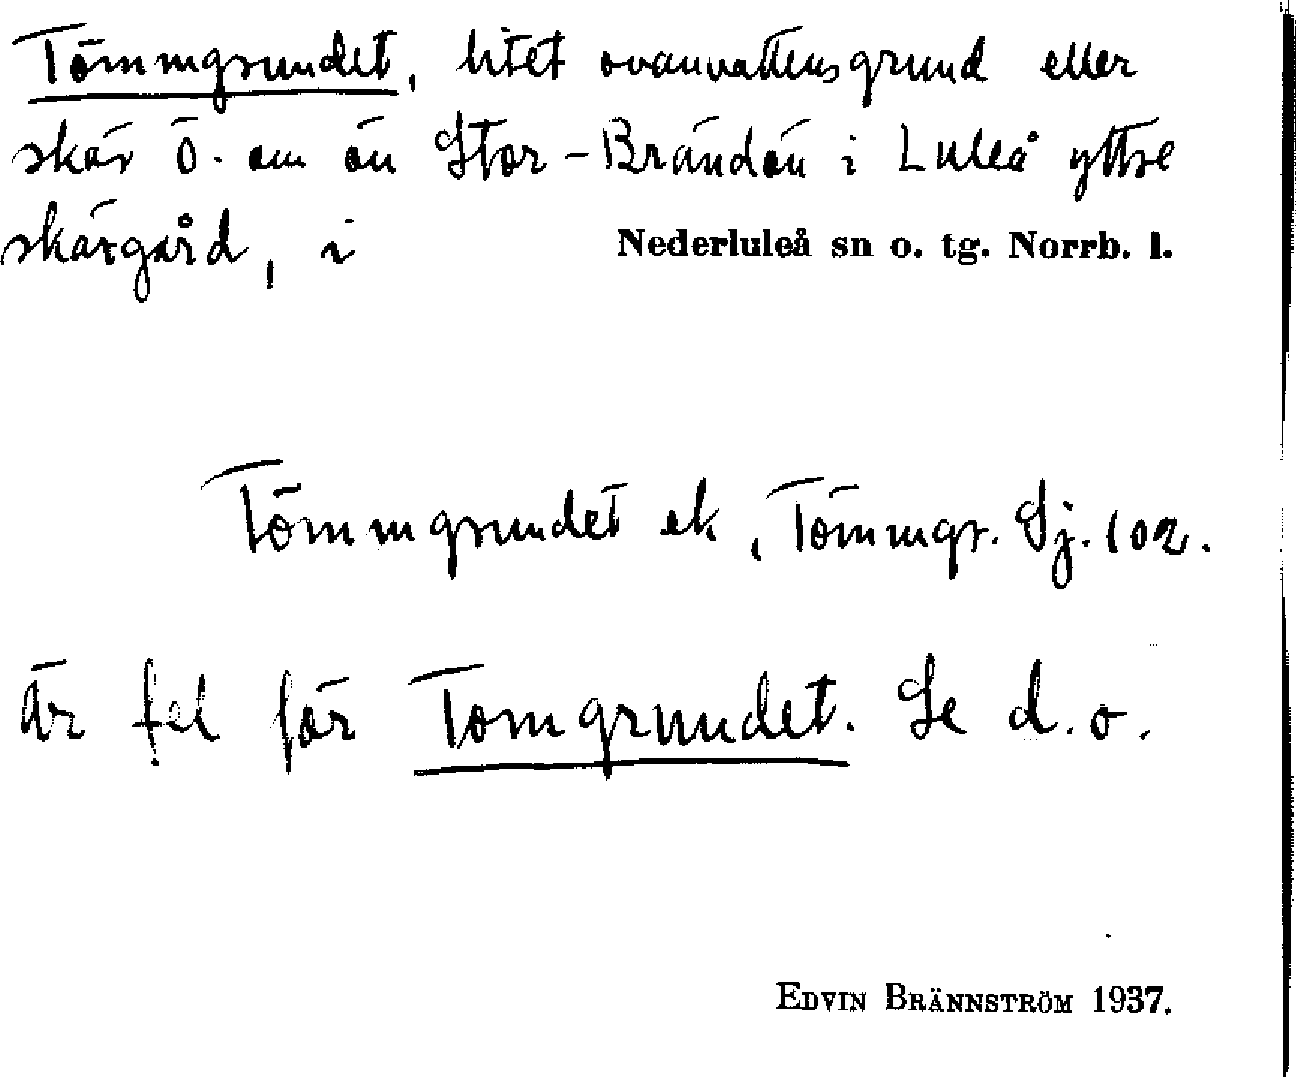 Tömmgrundet, litet ovanvattensgrund eller
skär Ö. om ön Stor-Brändön i Luleå yttre
skärgård, i Nederluleå sn o. tg. Norrb. l.
Tömmgrundet ek, Tömmgr. Sj. 102.
är fel för Tomgrundet. Se d.o.
EDVIN BRÄNNSTRÖM 1937.